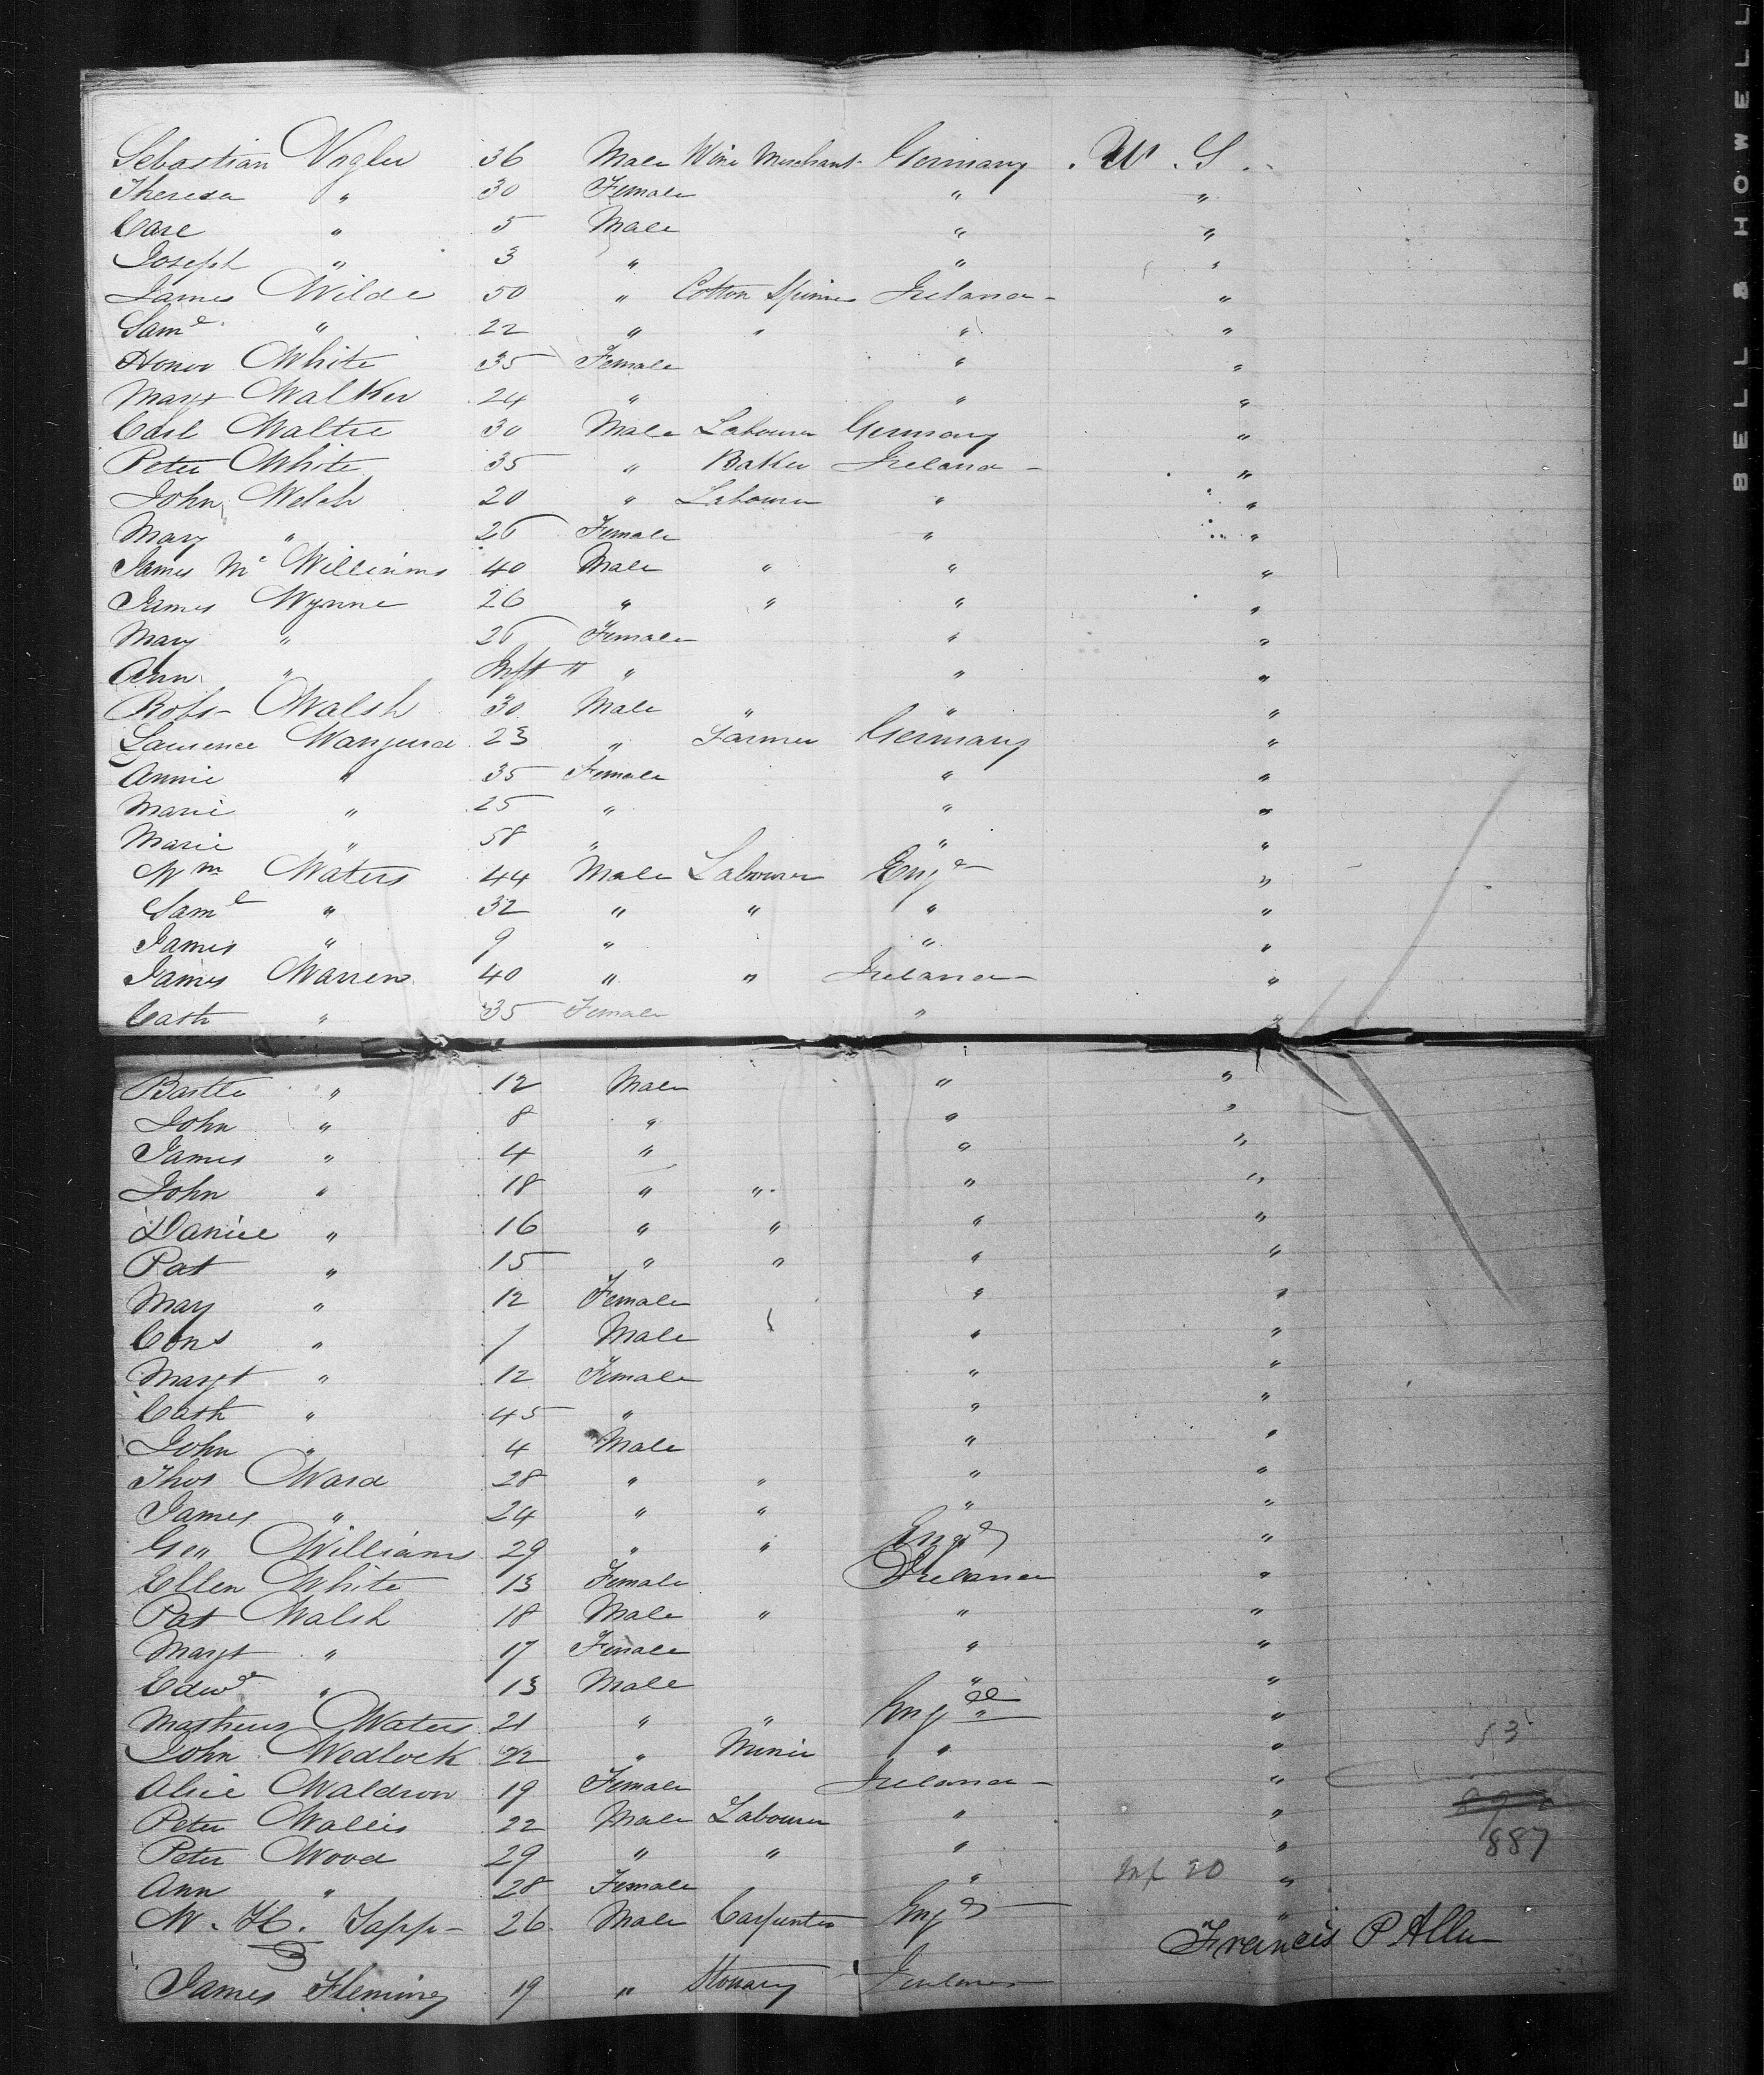 Sebastian Vogler 36 Male Wine Merchant Germany . U . S .
Theresa " 30 Female " "
Carl " 5 Male " "
Joseph " 3 " " "
James Wilde 50 " Cotton Spinner Ireland "
Saml " 22 " " " "
Honor White 35 Female " "
Margt Walker 24 " " "
Carl Waltre 30 Male Labourer Germany "
Peter White 35 " Baker Ireland "
John Welsh 20 " Labourer " "
Mary " 26 Female " "
James Mc Williams 40 Male " " "
James Wynne 26 " " " "
Mary " 26 Female " "
Ann " Inft " " " "
Robt Walsh 30 Male " " "
Laurence 23 " Farmer Germany "
Annie " 35 Female " "
Marie " 25 " " "
Marie " 58 " " "
Wm Waters 44 Male Labourer Engd "
Saml " 32 " " " "
James " 9 " " "
James Warren 40 " " Ireland "
Cath " 35 Female " "
Bartle " 12 Male " "
John " 8 " " "
James " 4 " " "
John " 18 " " " "
Daniel " 16 " " " "
Pat " 15 " " " "
Mary " 12 Female " "
Cons " 1 Male " "
Margt " 12 Female " "
Cath " 45 " " "
John " 4 Male " "
Thos Ward 28 " " " "
James " 24 " " " "
Geo Williams 29 " " Engd "
Ellen White 13 Female Ireland "
Pat Walsh 18 Male " " "
Margt " 17 Female " "
Edwd " 13 Male " "
Mathew Waters 21 " " Engd "
John Wedlock 22 " Miner " " 53
Alice Waldron 19 Female Ireland "
Peter Wallis 22 Male Labourer " "
Peter Wood 29 " " " " 887
Ann " 28 Female " Inf 20 "
W. H. Sapp 26 Male Carpenter Engd "
Francis P Allen
James Fleming 19 " Ireland
BELL & HOWELL